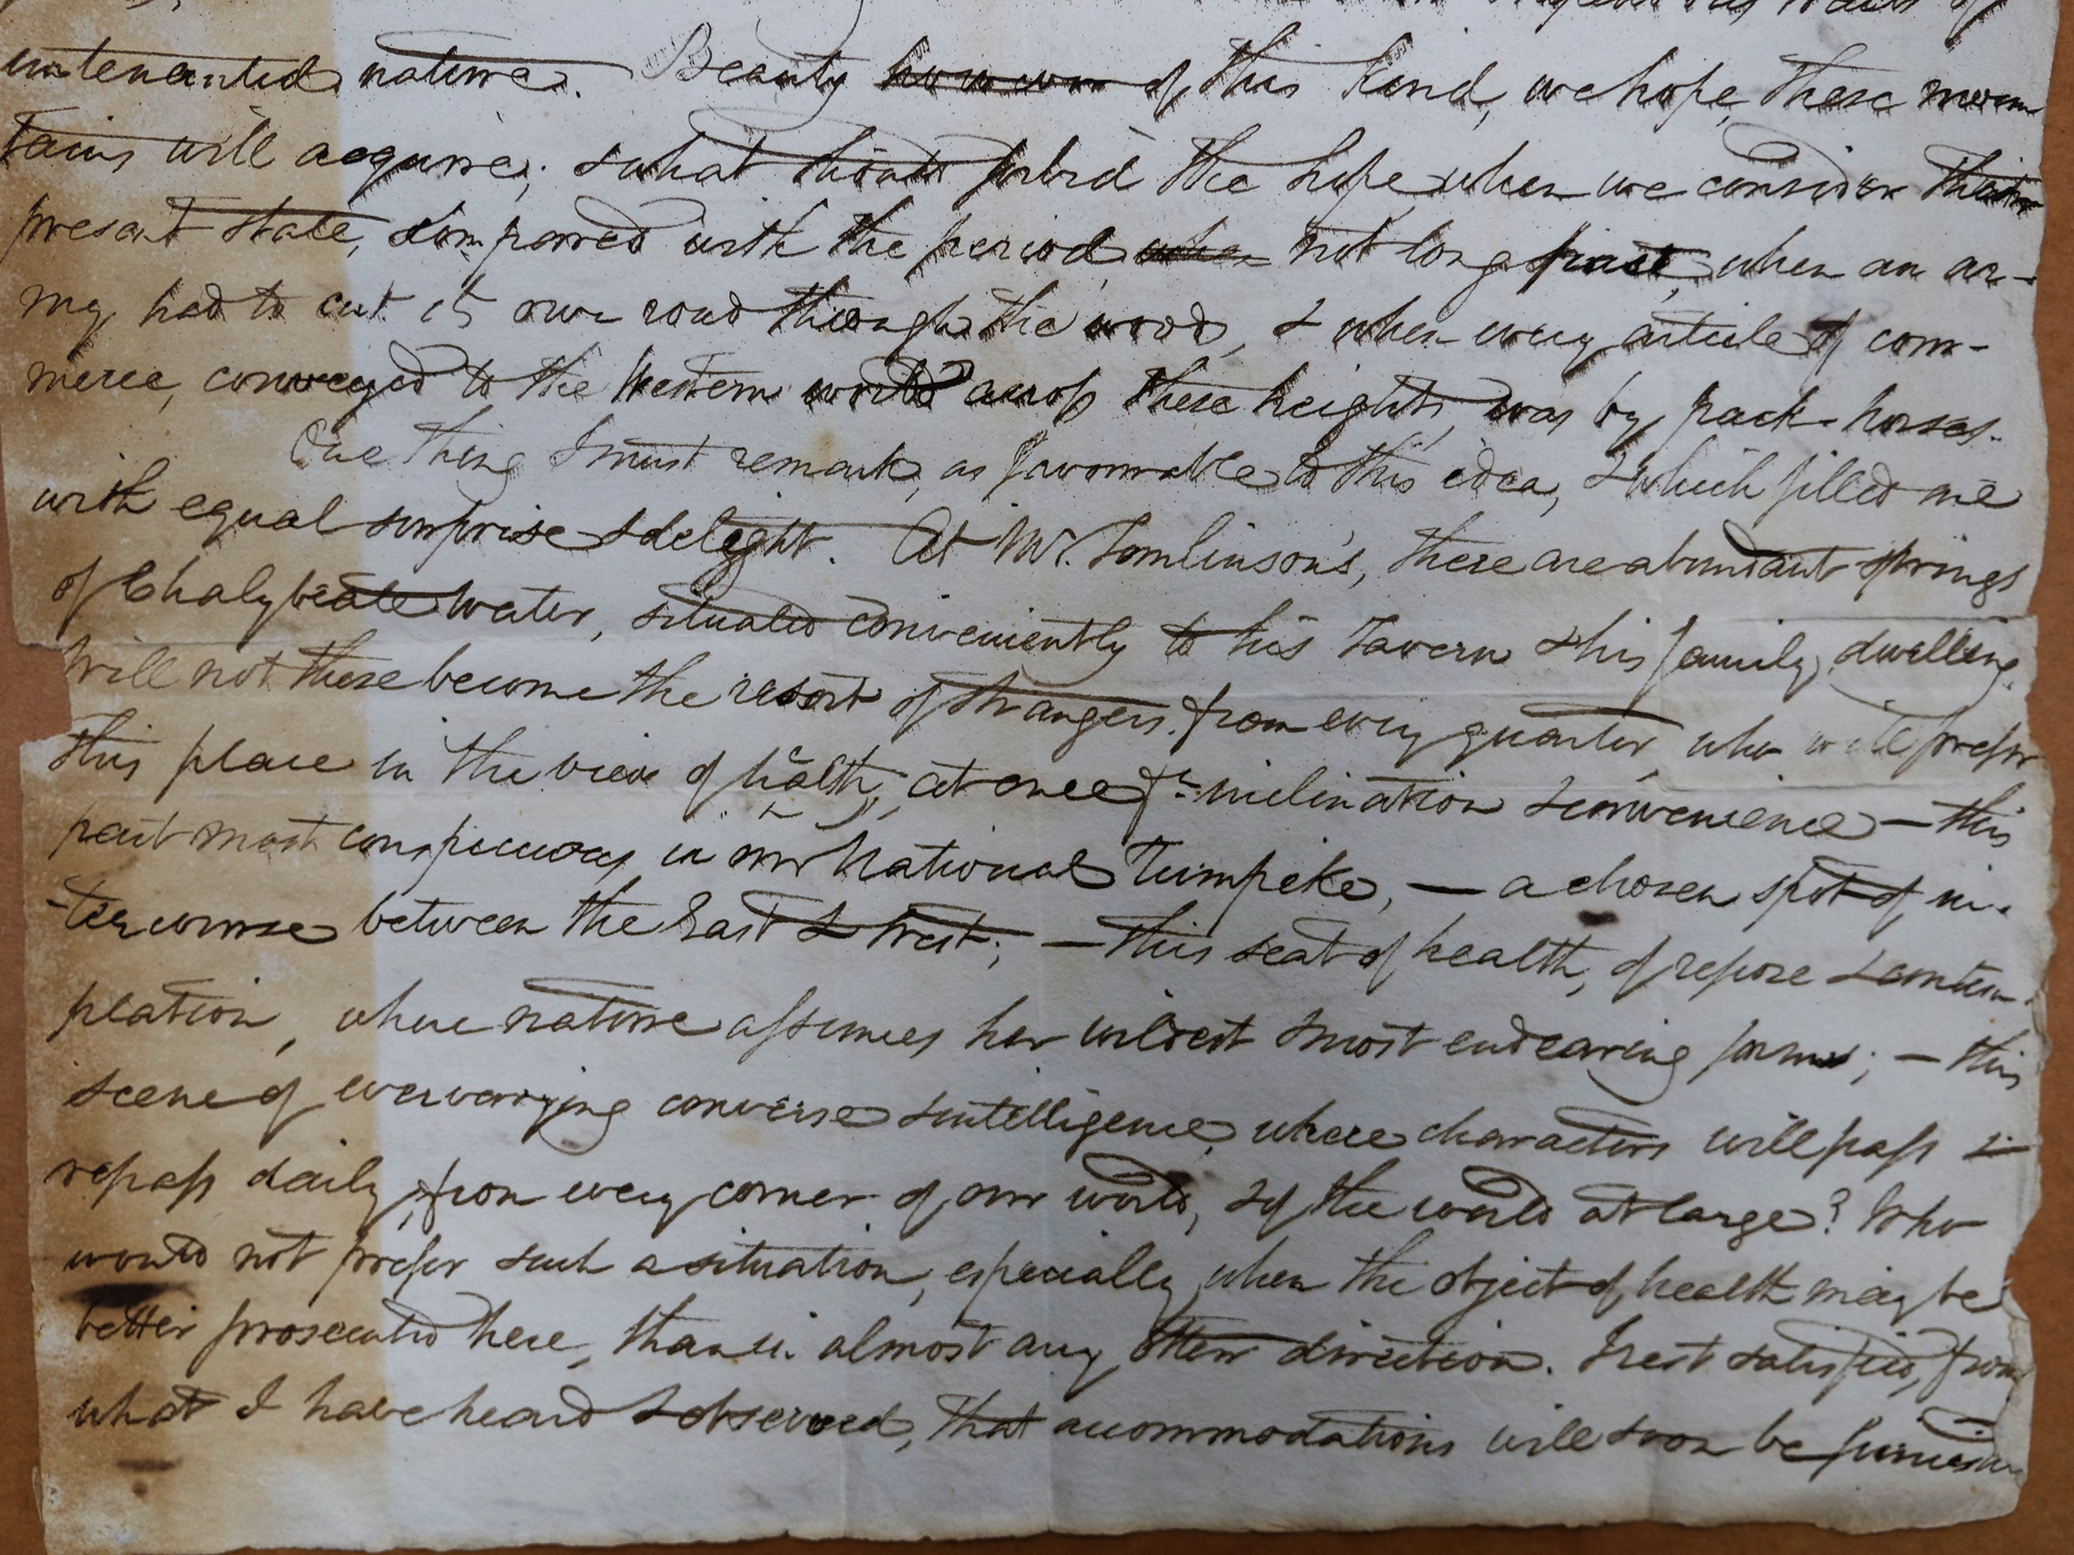 untenanted nature. Beauty of this kind, we hope, these moun
tains will acquire; & what should forbid the hope when we consider their
present state, compared with the period, when not long past, when an ar-
my had to cut its own road through the woods, & when every article of com-
merce, conveyed to the Western world across these heights, was by pack-horses.
One thing I must remark, as favourable to this idea, & which filled me
with equal surprise & delight. At Mr. Tomlinson's, there are abundant springs
of Chalybeate water, situated conveniently to his Tavern & his family dwelling.
Will not these become the resort of strangers from every quarter, who will prefer
this place in the view of health, at once fr. inclination & convenience — this
part most conspicuous in our National Turnpike, — a chosen spot of in-
-tercourse between the East & West; — this seat of health, of repose & contem-
plation, where nature assumes her wildest & most endearing forms; — this
scene of ever varying converse & intelligence, where characters will pass &
repass daily, from every corner of our world, & of the world at large? Who
would not prefer such a situation, especially when the object of health may be
better prosecuted here, than in almost any other direction. I rest satisfied, from
what I have heard & observed, that accommodations will soon be